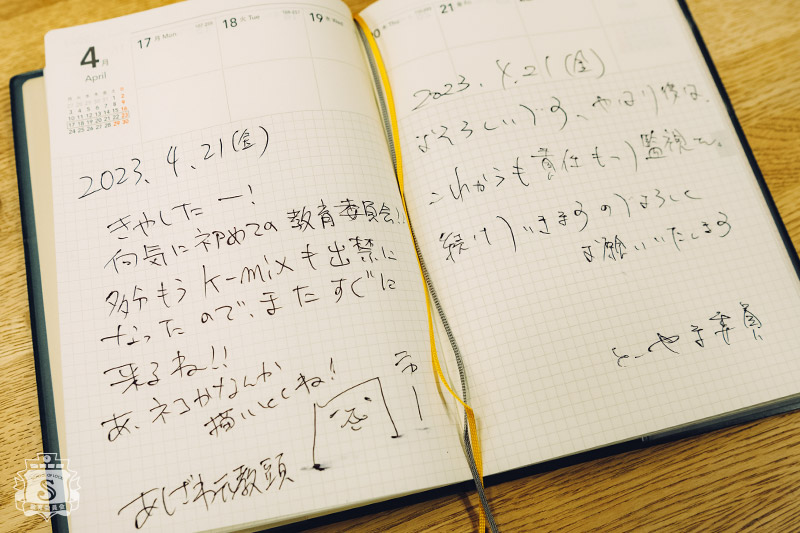 4月
April
17 月 Mon
18 火 Tue
19 水 Wed
20 木
21 金
2023.4.21(金)
きやしたー!
何気に初めての教育委員会!!
多分もう K-mixも出禁に
なったので、またすぐに
来るね!!
あ、ネコかなんか
描いとくね!
あしざわ元教頭
2023.4.21(金)
よろしいです。やはり彼は、
これからも責任もって監視を。
続けていきますのでよろしく
お願いいたします
とーやま委員
S